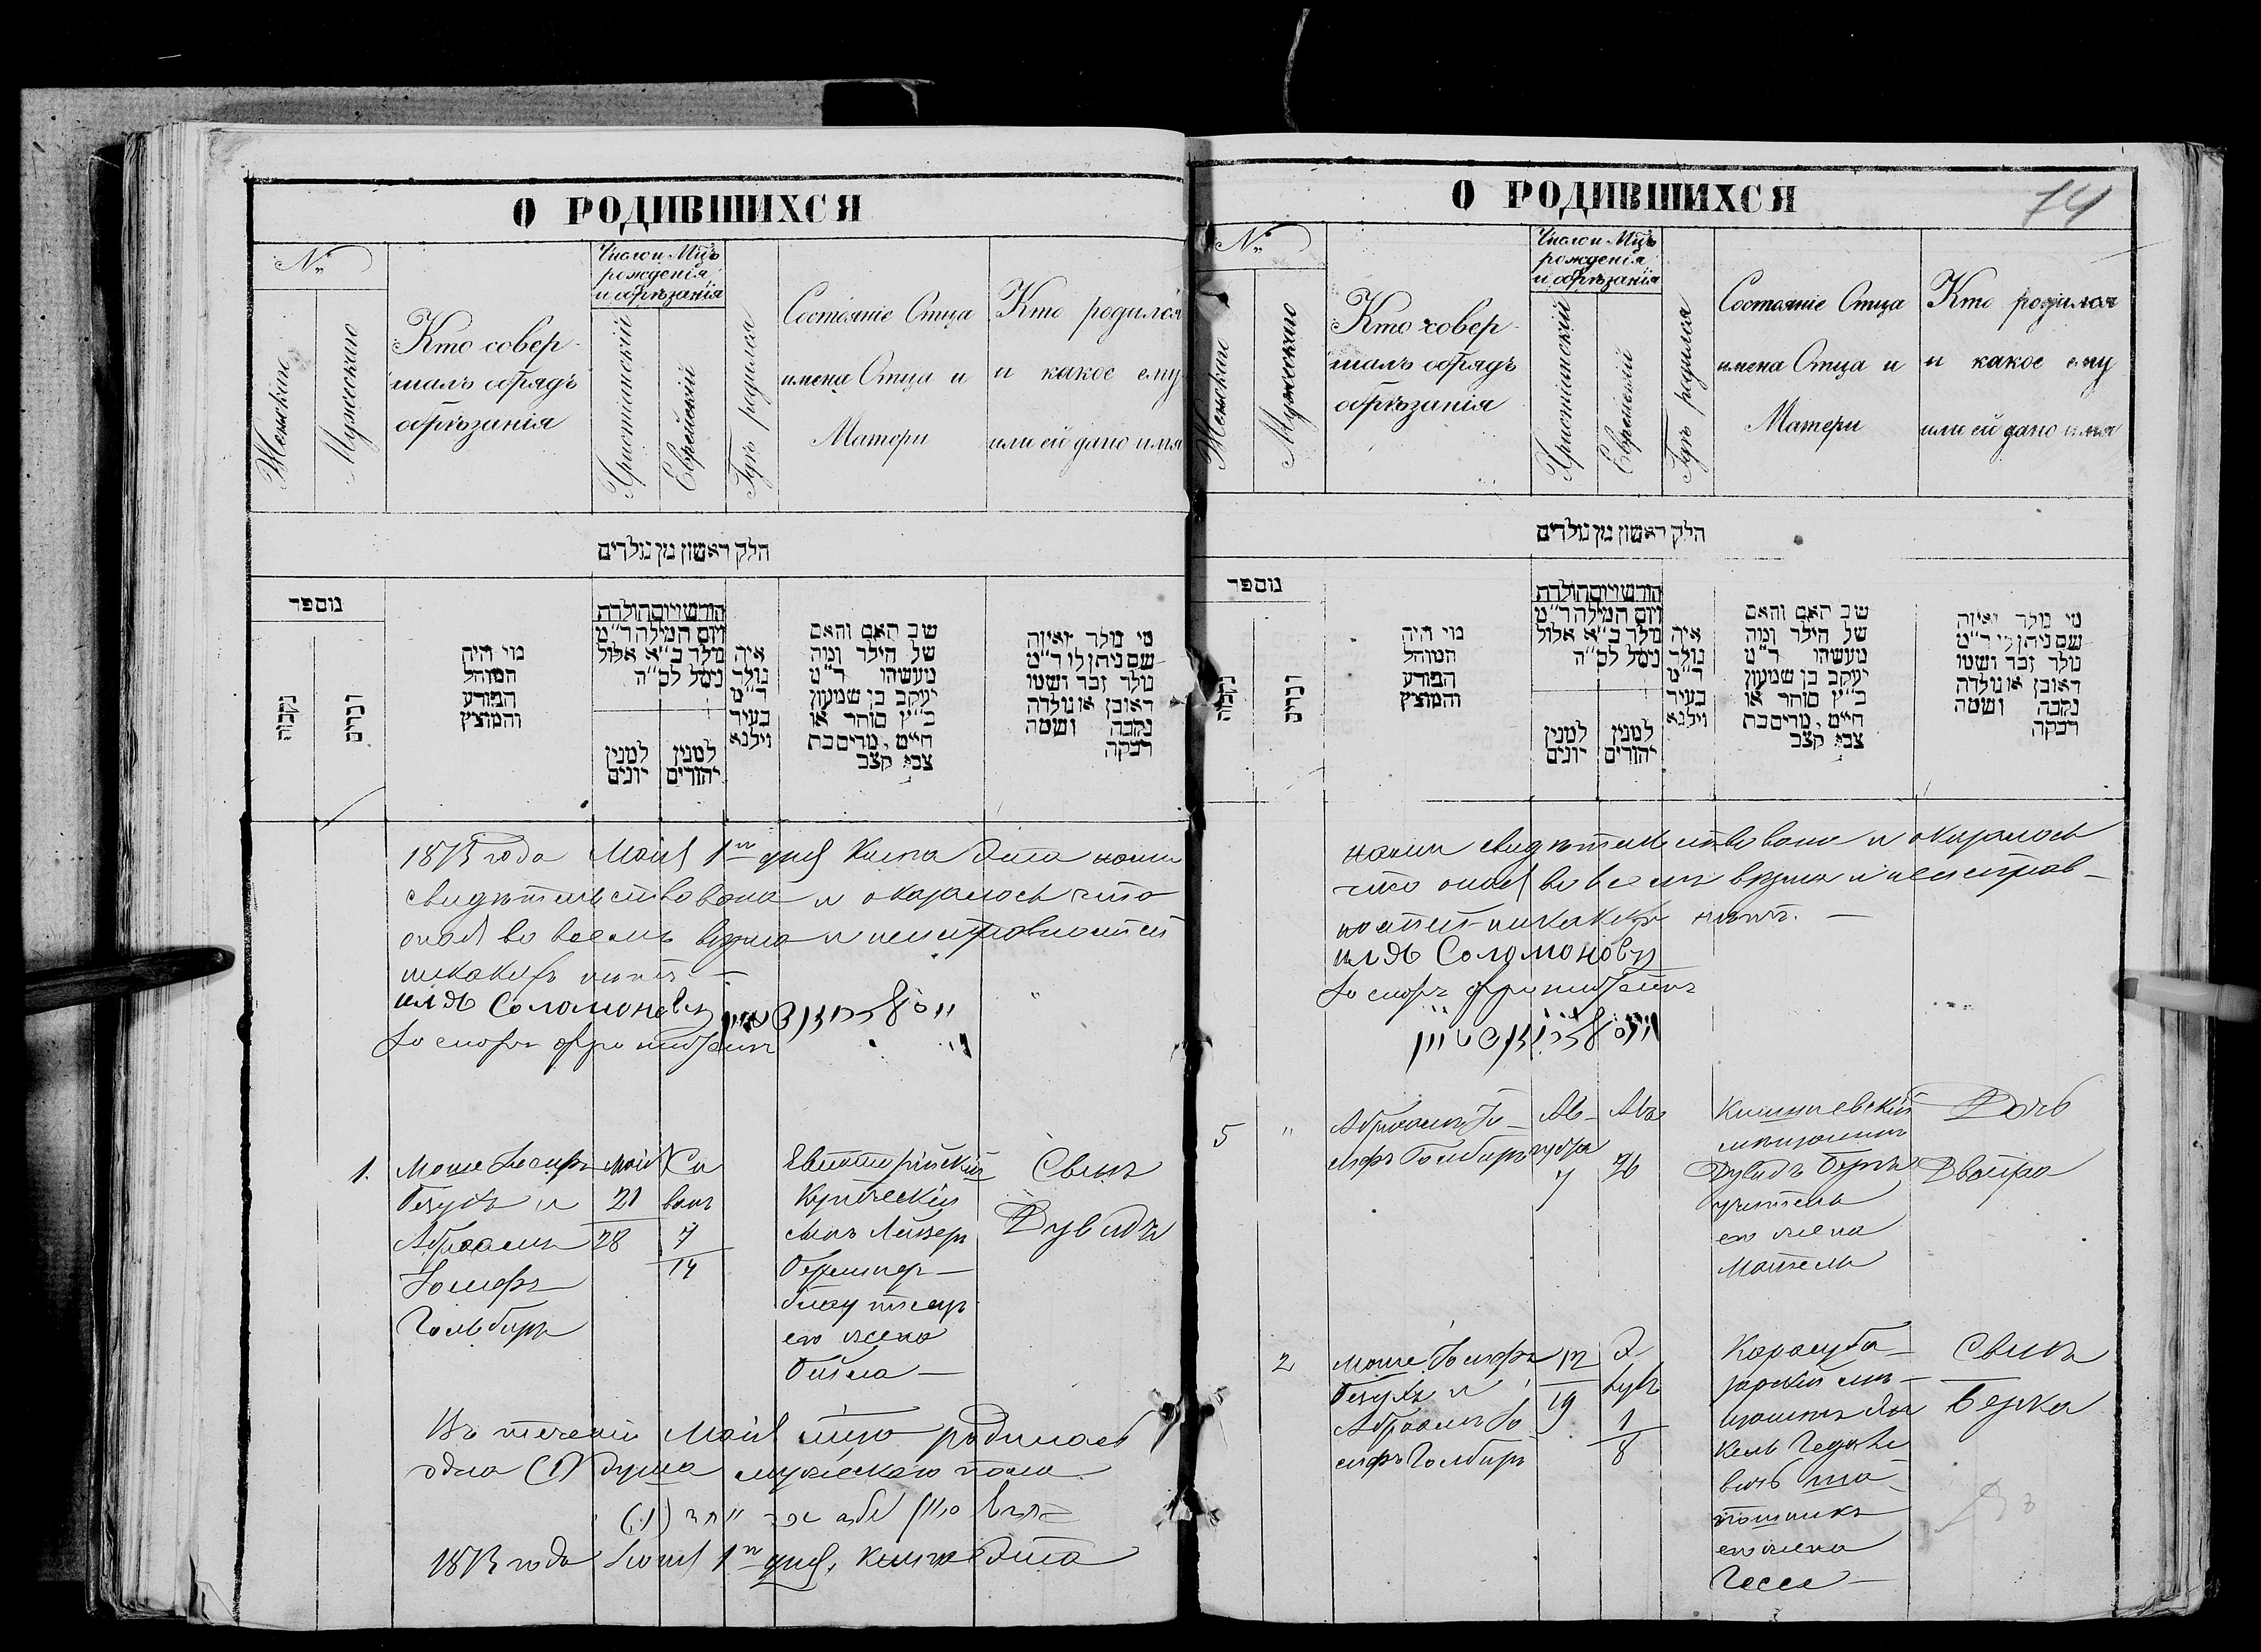 О РОДИВШИХСЯ
№
Женскаго
Мужескаго
Кто совер-
шалъ обрядъ
обрѣзанія
Число и Мцъ
рожденія
и обрѣзанія
Христіанскій
Еврейскій
Гдѣ родился
Состояніе Отца
имена Отца и
Матери
Кто родился
и какое ему
или ей дано имя
חלק ראשון מן נולדים
נוספר
נקבות
זכרים
מי היה
המוהל
הפורע
והמוצץ
חודש ויום הולדת
ויום המילה ר"מ
נולד ב"א אלול
נימל לס"ה
למנין
יונים
למנין
יהודים
איה
נולד
ר"מ
בעיר
וילנא
שם האב והאם
של הילד ומה
מעשהו ר"מ
יעקב בן שמעון
כ"ץ סוחר או
חייט, מרים בת
צבי קצב
מי נולד ואיזה
שם ניתן לו ר"מ
נולד זכר ושמו
ראובן או נולדה
נקבה ושמה
רבקה
1873 года Мая 1го дня Книга Эта нами
свидѣтельствована и оказалось что
оная во всемъ вѣрна и неисправностей
никакихъ нѣтъ —
Соломоновъ
1.
Моше Іосифъ
и
Абраамъ
Іосифъ
Гольбиръ
Мая
21
28
Си
ванъ
7
14
Купеческій
сынъ Лейзеръ
его жена
Бейла —
Сынъ
Дувидъ
Въ теченіи Мая мцо родилась
одна (1) душа мужескаго пола
1873 года Іюня 1го дня, Книга Эта
О РОДИВШИХСЯ
74
№
Женскаго
Мужескаго
Кто совер-
шалъ обрядъ
обрѣзанія
Число и Мцъ
рожденія
и обрѣзанія
Христіанскій
Еврейскій
Гдѣ родился
Состояніе Отца
имена Отца и
Матери
Кто родился
и какое ему
или ей дано имя
חלק ראשון מן נולדים
נוספר
נקבות
זכרים
מי היה
המוהל
הפורע
והמוצץ
חודש ויום הולדת
ויום המילה ר"מ
נולד ב"א אלול
נימל לס"ה
למנין
יונים
למנין
יהודים
איה
נולד
ר"מ
בעיר
וילנא
שם האב והאם
של הילד ומה
מעשהו ר"מ
יעקב בן שמעון
כ"ץ סוחר או
חייט, מרים בת
צבי קצב
מי נולד ואיזה
שם ניתן לו ר"מ
נולד זכר ושמו
ראובן או נולדה
נקבה ושמה
רבקה
нами свидѣтельствована и оказалось
что оная во всемъ вѣрна и неисправ-
ностей никакихъ нѣтъ. —
Соломоновъ
5 "
Абраамъ Іо-
сифъ Гольбиръ
Ав-
густа
7
Авъ
26
Кишиневскій
мѣщанинъ
Дувидъ Беръ
учитель
его жена
Дочь
Двойра
2
Моше Іосифъ
и
Абраамъ Іо
сифъ Гольбиръ
12
19
Э
лулъ
1
8
Карасуба-
зарскій мѣ-
щанинъ Ян
кель
его жена
Гесея —
Сынъ
Берка